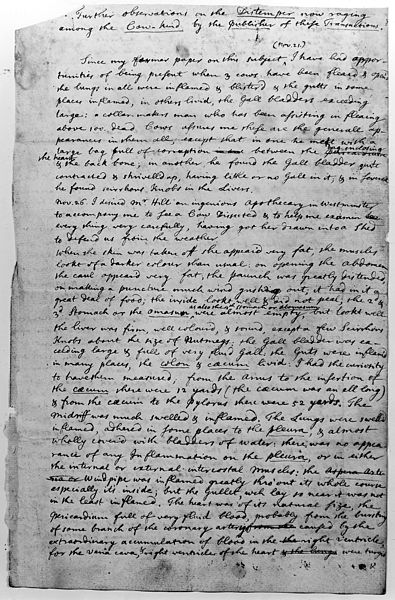 Further observations on the Distemper now raging
among the Cow-kind by the Publisher of these Transactions.
(Nov. 21.)
Since my former paper on this subject, I have had oppor-
tunities of being present when 8 cows have been flead & open'd
the lungs in all were inflamed & blister'd & the gutts in some
places inflamed, in others livid, the Gall bladders exceeding
large: a collar-makers man who has been assisting in fleaing
above 100. dead Cows assures me these are the generall ap-
pearances in them all, except that in one he met with a
large bag full of corruption between the
the heart
& the back bone, in another he found the Gall bladder quite
contracted & shrivelled up, having little or no Gall in it, & in several
he found scirrhous Knobs in the Livers.
Nov. 26. I desired Mr. Hill an ingenious Apothecary in Westminster
to accompany me to see a Cow Dissected & to help me examin
every thing very carefully, having got her drawn into a Shed
to defend us from the weather.
When the skin was taken off she appeard very fat, the muscles
lookt of a darker colour than usual. on opening the Abdomen
the caul appeard very fat, the paunch was greatly distended
on making a puncture much wind gusht out, it had in it a
great deal of food; the inside lookt well & did not peal, the 2d &
3d Stomach or the omasum, were almost empty, but lookt well
the liver was firm, well colour'd, & sound, except a few Scirrhous
Knobs about the size of Nutmegs, the Gall bladder was ex-
ceeding large & full of very fluid Gall, the Guts were inflamd
in many places, the colon & cæcum livid. I had the curiosity
to have them measured, from the Anus to the insertion of
the cæcum there were 12 yards, (the cæcum was an ell long
& from the cæcum to the Pylorus there were 52 yards. The
Midriff was much swelled & inflamed. The Lungs were swelld
inflamed, adhered in some places to the pleura, & almost
wholly coverd with bladders of water; there was no appea-
rance of any Inflammation on the pleura, or in either
the internal or external intercostal Muscles; the Aspera Arte-
ria or Windpipe was inflamed greatly thro'out its whole course
especially its inside; but the Gullet wch lay so near it was not
in the least inflamed. The heart was of its natural size, the
pericardium full of very fluid blood, probably from the bursting
of some branch of the coronary artery caused by the
extraordinary accumulation of blood in the right ventricle
for the vena cava, & right ventricle of the heart were turgid